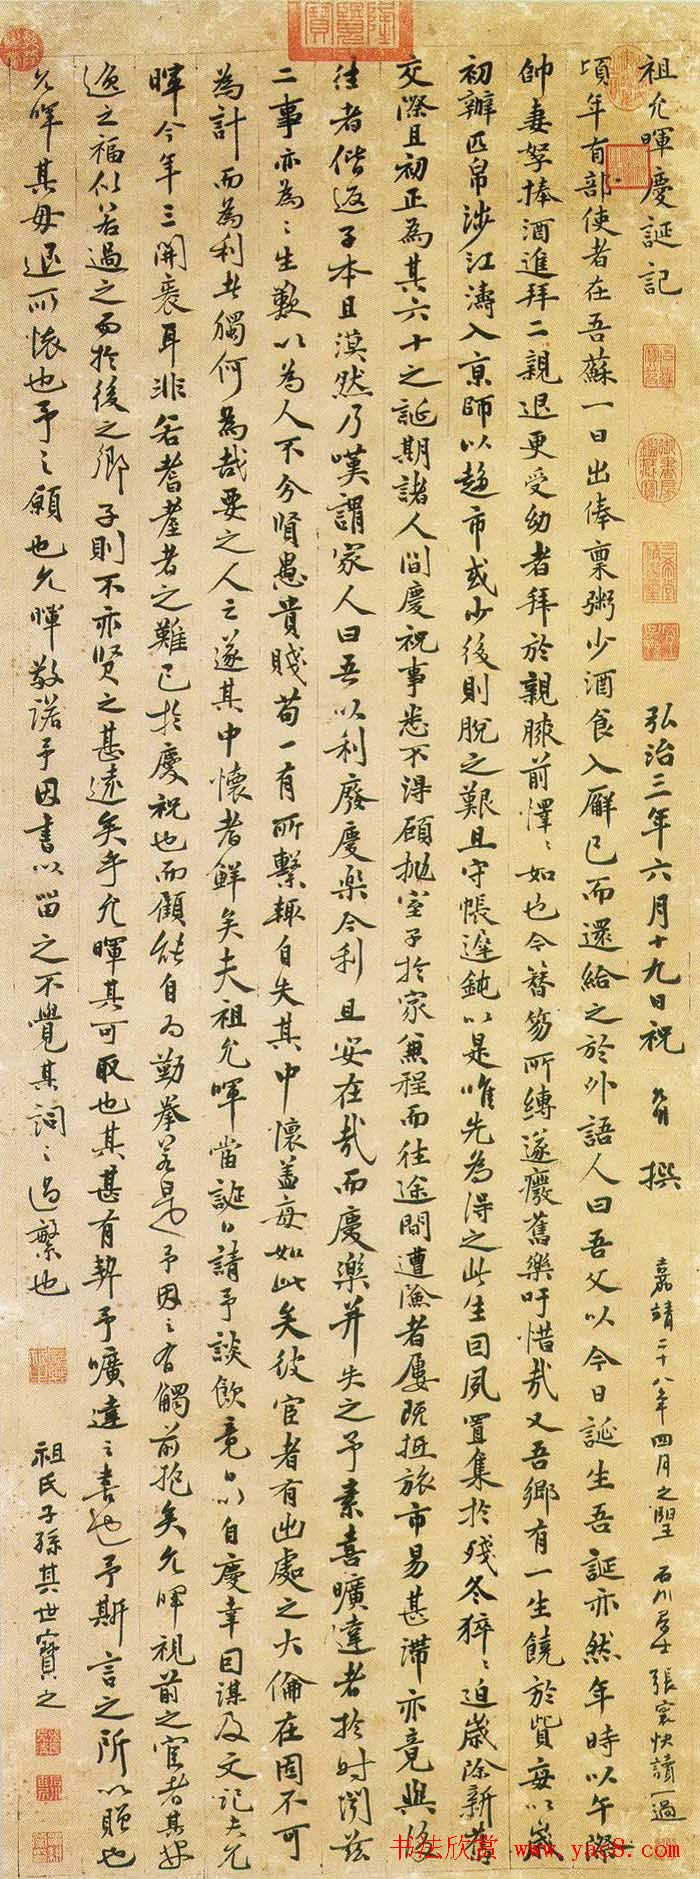 祖允暉慶誕記
弘治三年六月十九日祝 撰
嘉靖二十八年四月之望 石川 張寰快讀一過
頃年有部使者在吾蘇一日出俸稟粥少酒食入廨已而還給之於外語人曰吾父以今日誕生吾誕亦然年時以午際
帥妻孥捧酒進拜二親退更受幼者拜於親膝前懌〻如也今簪笏所縛遂廢舊樂吁惜哉又吾鄉有一生饒於貲每以歲
初辦匹帛涉江濤入京師以趨市或少後則脫之艱且守帳遲鈍以是唯先為得之此生目夙置集於殘冬猝〻迫歲除新舊
交際且初正為其六十之誕期諸人間慶祝事悉不得顧拋室子於家兼程而往途間遭澮者屢既抵旅市易甚滯亦竟與後
往者偕返子本且漠然乃嘆謂家人曰吾以利廢慶樂今利且安在哉而慶樂并失之予素喜曠達者於時閔茲
二事亦為〻生歎以為人不分賢愚貴賤苟一有所繫輒自失其中懷蓋每如此矣彼宦者有出處之大倫在固不可
為計而為利者獨何為哉要之人之遂其中懷者鮮矣夫祖允暉當誕日請予談飲竟日以自慶幸因謀及文記夫允
暉今年三開袠耳非若耆耋者之難已於慶祝也而顧能自為勤拳若是予因〻有觸前抱矣允暉視前之宦者其安
逸之福似若過之而於後之鄉子則不亦賢之甚遠矣乎允暉其可取也其甚有契予曠達之喜也予斯言之所以贈也
允暉其毋退所懷也予之願也允暉敬諾予因書以留之不覺其詞〻過繁也
祖氏子孫其世寶之
书法欣赏 www.yac8.com